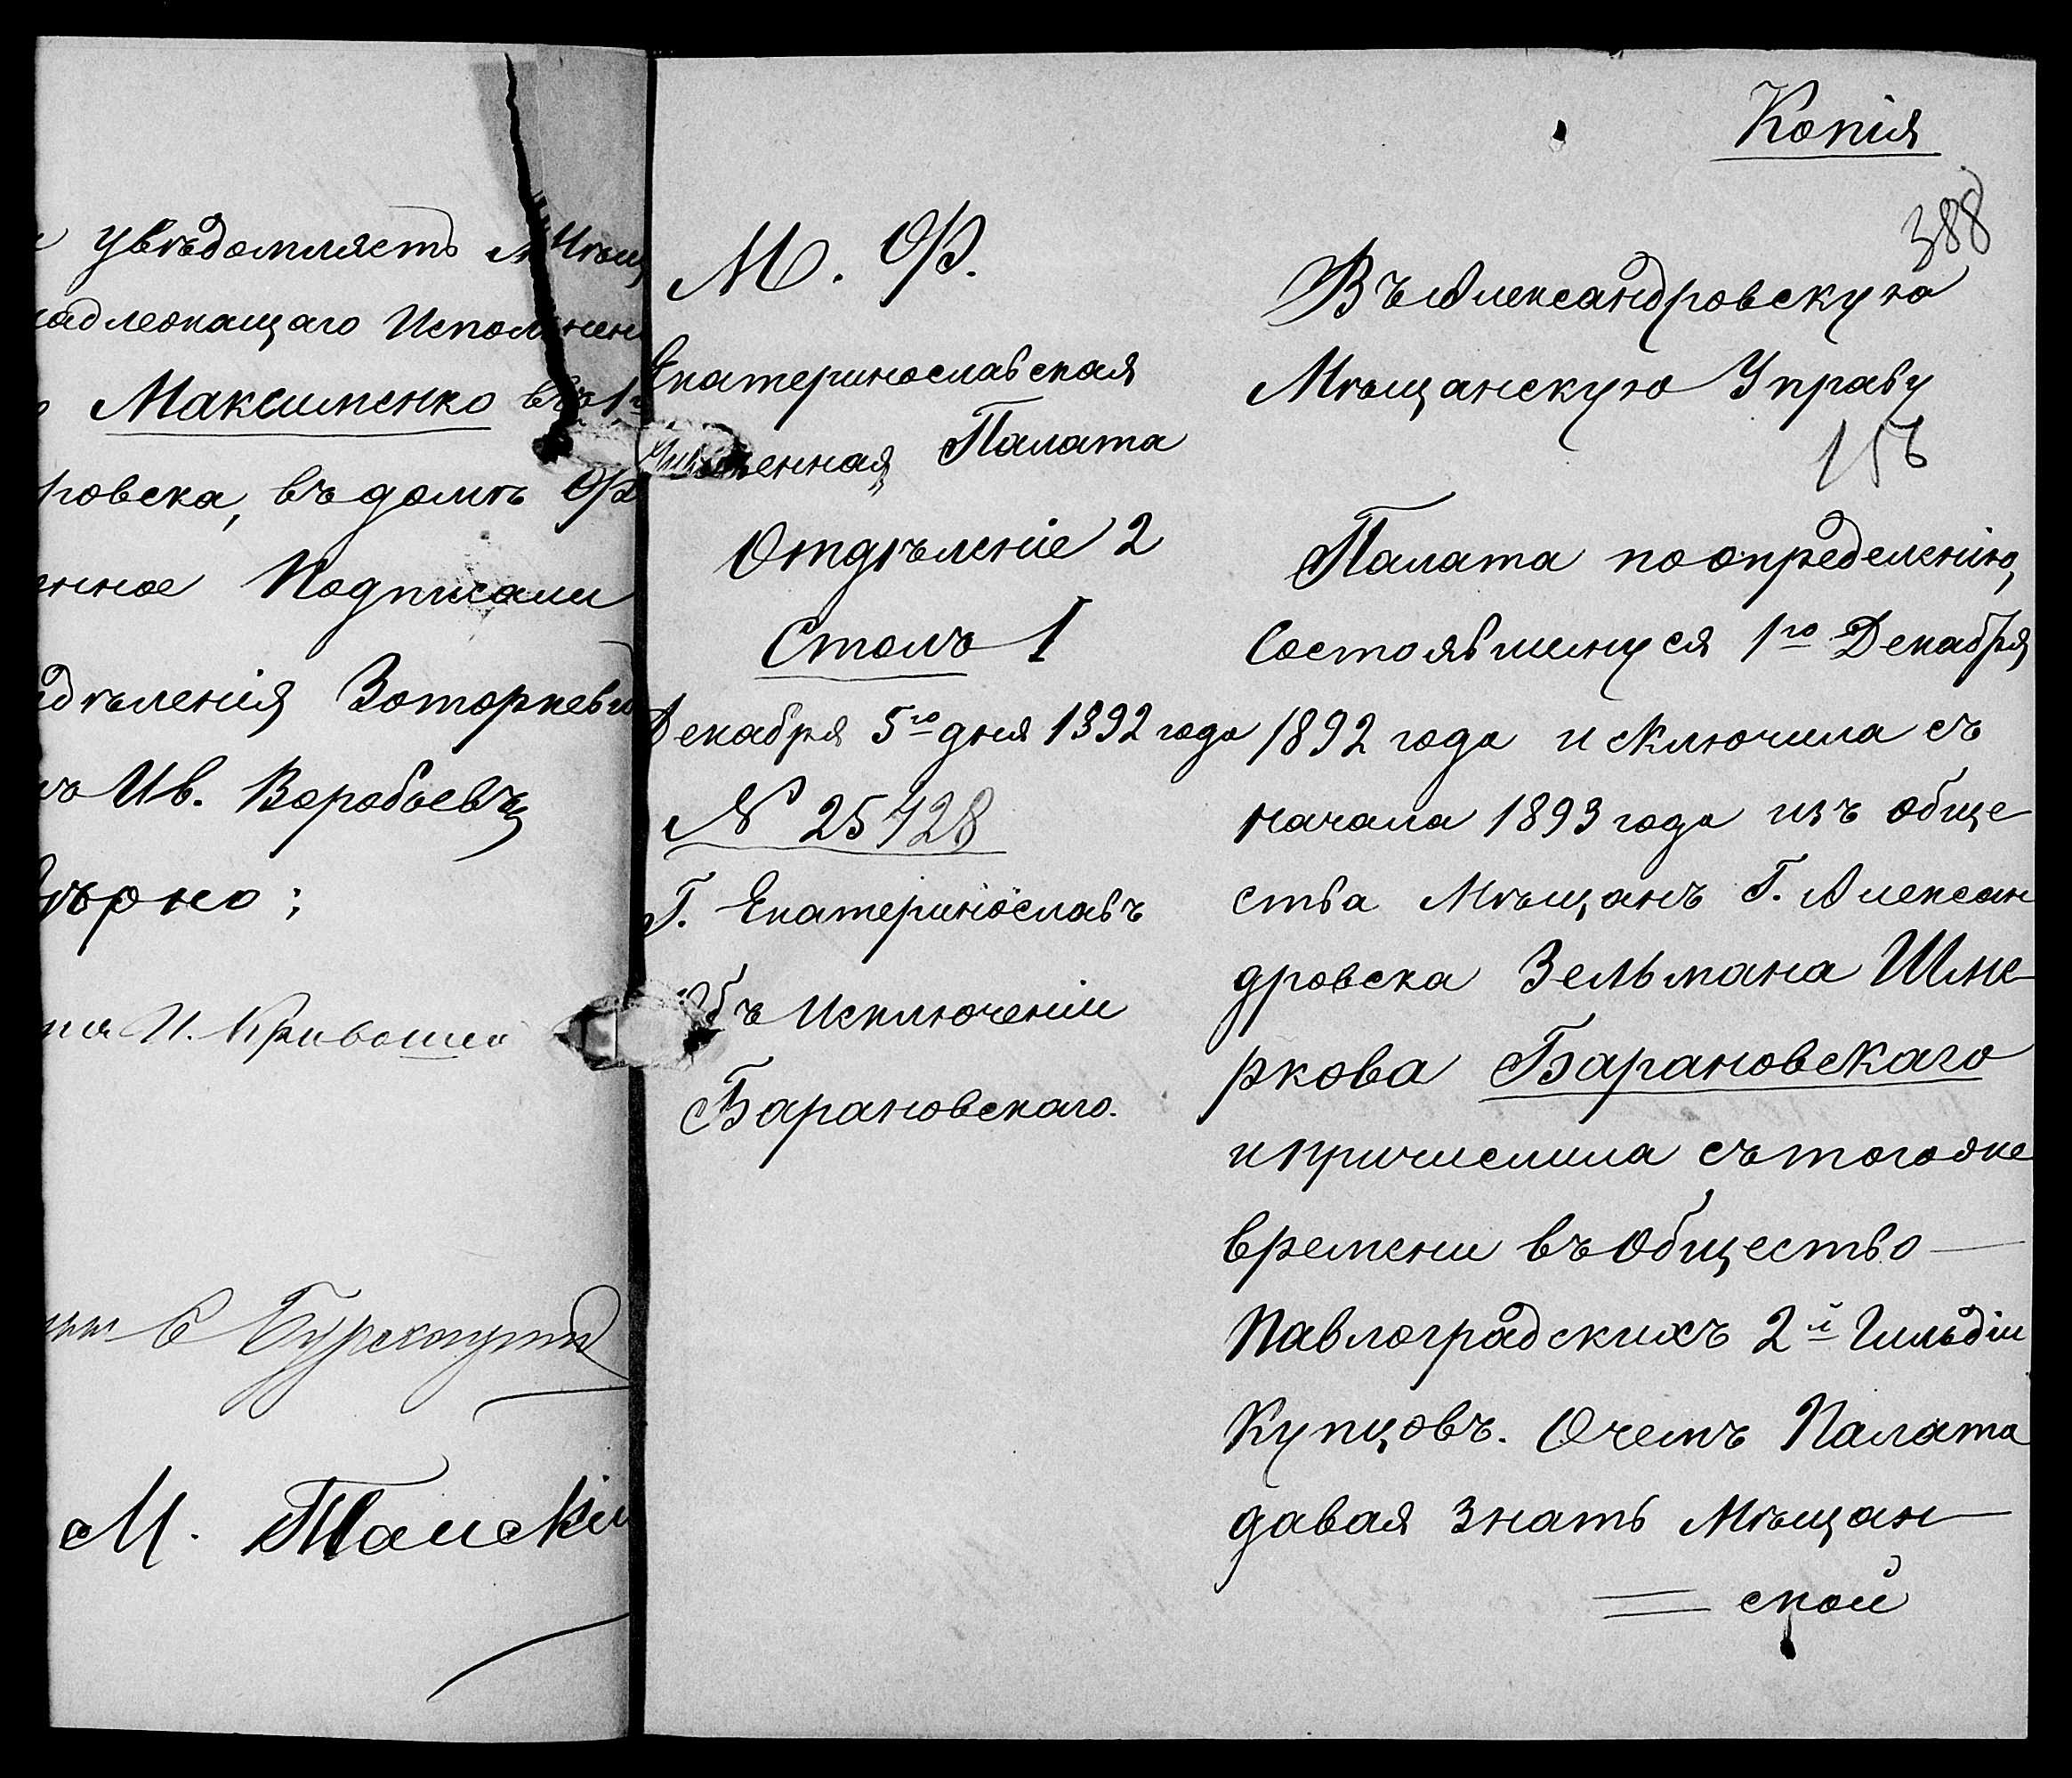 увѣдомляетъ Мѣщ
адлежащаго Исполнен
Максименко въ 1й
ровска, въ домѣ Ф
нное Подписали
дѣленія
Ив. Воробьевъ
Вѣрно:
И. Кривоше
М.
Копія
388
М. Ф.
Екатеринославская
Казенная Палата
Отдѣленіе 2
Столъ 1
Декабря 5го дня 1892 года
№ 25428
Г. Екатеринославъ
Объ Исключеніи
Барановскаго.
Въ Александровскую
Мѣщанскую Управу
Палата по опредѣленію,
Состоявшемуся 1го Декабря
1892 года исключила съ
начала 1893 года изъ обще
ства Мѣщанъ Г. Алексан
дровска Зельмана Шме
ркова Барановскаго
и причислила съ того же
времени въ Общество —
Павлоградскихъ 2й Гильдіи
Купцовъ. О чемъ Палата
давая знать Мѣщан—
= ской